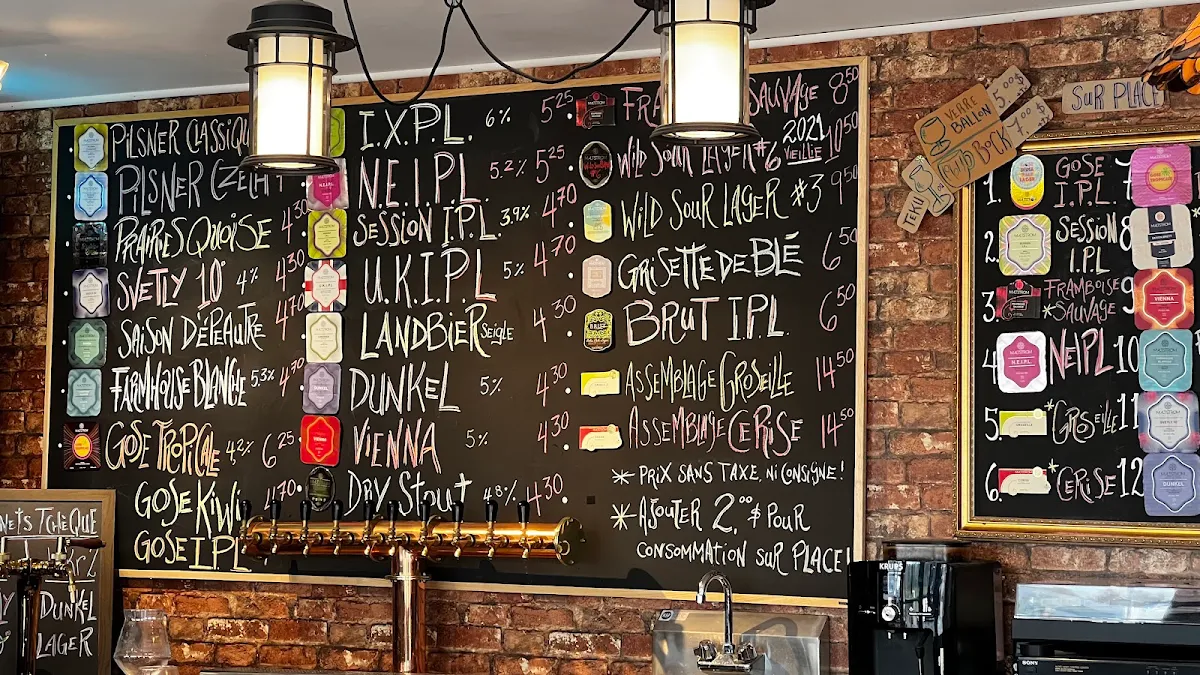 PILSNER CLASSIQU
PILSNER CZECH
PRAIRIESQUOISE 4.30
SVETLY 10° 4% 4.30
SAISON D'ÉPEAUTRE 4.70
FARMHOUSE BLANCHE 5.3% 4.30
GOSE TROPICALE 4,2% 6.25
GOSE KIWI 4.70
GOSE I.P.L.
I.X.P.L. 6% 5.25
N.E.I.PL 5.2% 5.25
SESSION I.P.L. 3.9% 4.70
U.K.I.P.L 5% 4.70
LANDBIER SEIGLE 4.30
DUNKEL 5% 4.30
VIENNA 5% 4.30
DRY STOUT 4.8% 4.30
FRA SAUVAGE 8.50
WILD SOUR LAGER #6 2021 VIEILLE 10.50
WILD SOUR LAGER #3 9.50
GRISETTE DE BLÉ 6.50
BRUT I.P.L. 6.50
ASSEMBLAGE GROSEILLE 14.50
ASSEMBLAGE CERISE 14.50
* PRIX SANS TAXE, NI CONSIGNE!
* AJOUTER 2.00$ POUR
CONSOMMATION SUR PLACE!
VERRE BALLON 5.00$
BOCK 7.00$
TEKU
SUR PLACE
1. GOSE I.P.L. 7
2. SESSION I.P.L 8
3. FRAMBOISE *SAUVAGE 9
4. NEIPL 10
5. *GROSEILLE 11
6. *CERISE 12
VIENNA
DUNKEL
NETS TCHEQUE
DUNKEL
LAGER
KRUPS
SONY